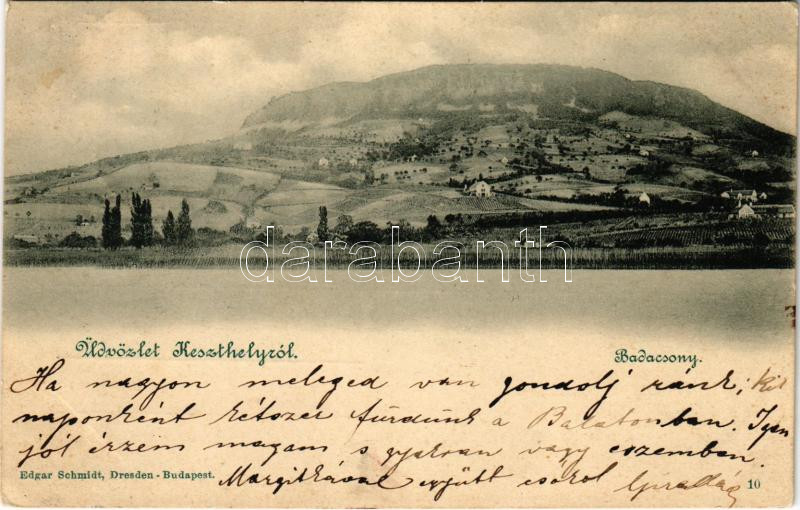 darabanth
Üdvözlet Keszthelyről.
Badacsony.
Ha nagyon meleged van gondolj ránk, kik
naponként kétszer fürdünk a Balatonban. Igen
jól érzem magam s gyakran vagy eszemben.
Edgar Schmidt, Dresden - Budapest.
Margitkával együtt csókol
10